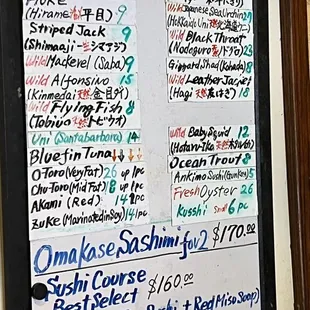 (Hirame 平目) 9
Striped Jack 9
(Shimaaji シマアジ)
Wild Mackerel (Saba) 9
Wild Alfonsino 15
(Kinmedai 天然 金目ダイ)
Wild Flying Fish 8
(Tobiuo 天然 トビウオ)
Uni (Santabarbora) 14
Bluefin Tuna ↓↓↓
O-Toro (Very Fat) 26 up 1pc
Chu-Toro (Mid Fat) 18 up 1pc
Akami (Red) 14 2pc
Zuke (Marinated in Soy) 14 1pc
Wild Japanese Sea Urchin
(Hokkaido Uni 29
Wild Black Throat
(Nodoguro 23
Gizzard Shad (Kohada) 8
Wild Leather Jacket
(Hagi 18
Wild Baby Squid 12
(Hotaru-Ika
Ocean Trout 8
Ankimo Sushi (Gunkan) 5
Fresh Oyster 26
Kusshi Small 6 pc
Omakase Sashimi for 2 $170.00
Sushi Course $160.00
Best Select
Sushi + Red Miso Soup)